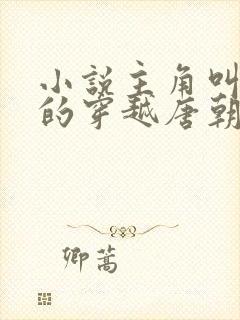 小说主角叫
的穿越唐朝
卿蒿